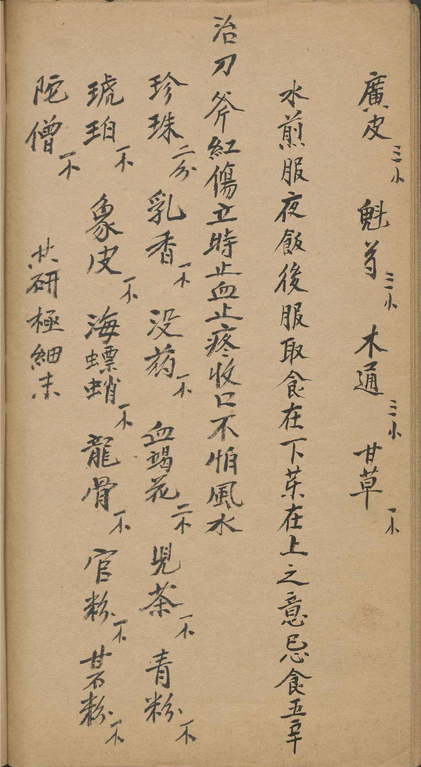 廣皮三小 魁芎三小 木通三小 甘草一不
水煎服夜飯後服取食在下葯在上之意忌食五辛
治刀斧紅傷立時止血止疼收口不怕風水
珍珠二分 乳香一不 没葯一不 血竭花二不 兒茶一不 青粉一不
琥珀一不 象皮一不 海螵蛸一不 龍骨一不 官粉一不
陀僧一不 共研極細末